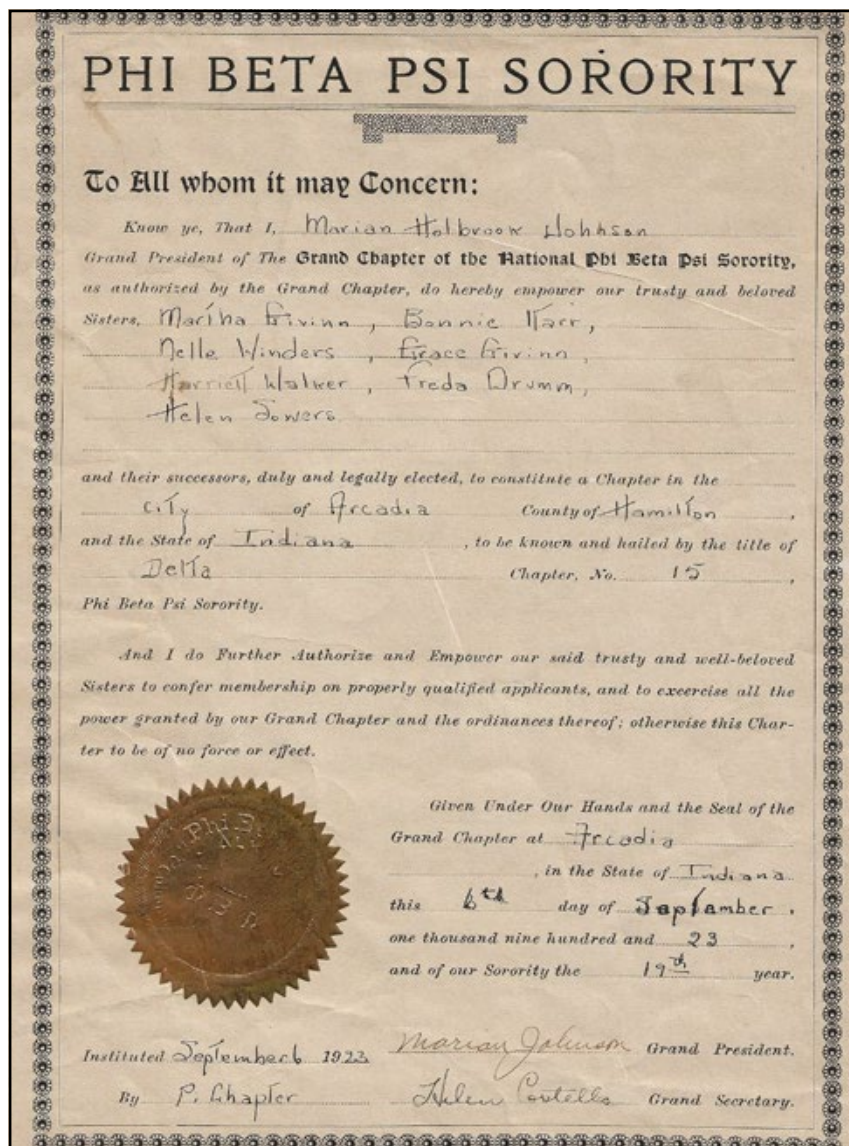 PHI BETA PSI SORORITY
To All whom it may Concern:
Know ye, That I, Marian Holbrook Johnson
Grand President of The Grand Chapter of the National Phi Beta Psi Sorority,
as authorized by the Grand Chapter, do hereby empower our trusty and beloved
Sisters, Martha Givinn, Bonnie Karr,
Nelle Winders, Grace Givinn,
Harriett Walker, Freda Drumm,
Helen Sowers
and their successors, duly and legally elected, to constitute a Chapter in the
City of Arcadia County of Hamilton,
and the State of Indiana, to be known and hailed by the title of
Delta Chapter, No. 15,
Phi Beta Psi Sorority.
And I do Further Authorize and Empower our said trusty and well-beloved
Sisters to confer membership on properly qualified applicants, and to excercise all the
power granted by our Grand Chapter and the ordinances thereof; otherwise this Char-
ter to be of no force or effect.
Given Under Our Hands and the Seal of the
Grand Chapter at Arcadia
, in the State of Indiana
this 6th day of September,
one thousand nine hundred and 23,
and of our Sorority the 19th year.
Phi B
Instituted September 6 1923 Marian Johnson Grand President.
By P. Chapter Helen Costello Grand Secretary.